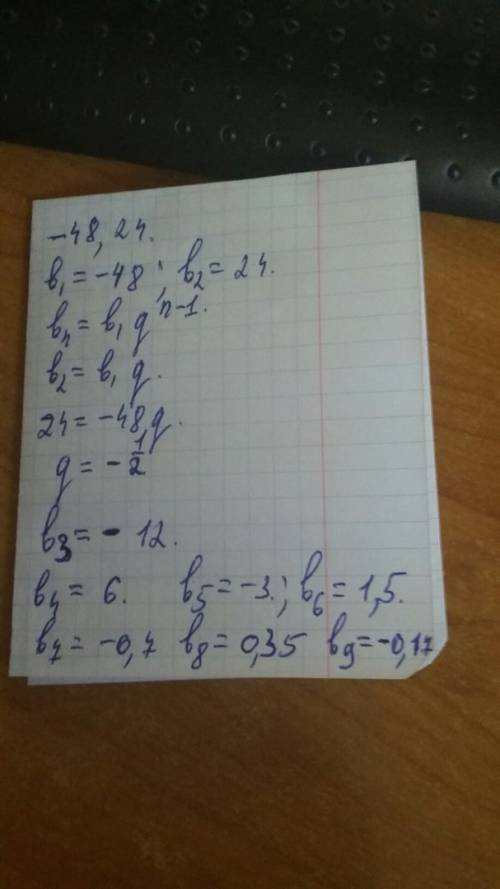 -48, 24.
b₁ = -48; b₂ = 24.
bₙ = b₁ qⁿ⁻¹.
b₂ = b₁ q.
24 = -48q.
q = -1/2
b₃ = - 12.
b₄ = 6. b₅ = -3.; b₆ = 1,5.
b₇ = -0,7 b₈ = 0,35 b₉ = -0,17